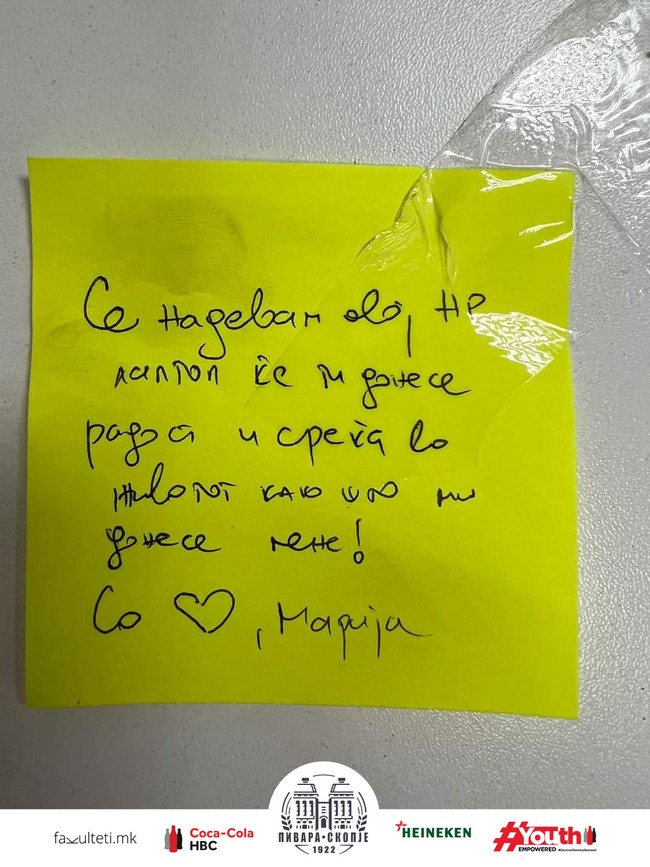 Се надевам овој HP
лаптоп ќе ти донесе
радост и среќа во
животот како што ми
донесе мене!
Со ♡, Марија
fakulteti.mk
Coca-Cola
HBC
ПИВАРА•СКОПЈЕ
1922
HEINEKEN
#YOUth
EMPOWERED